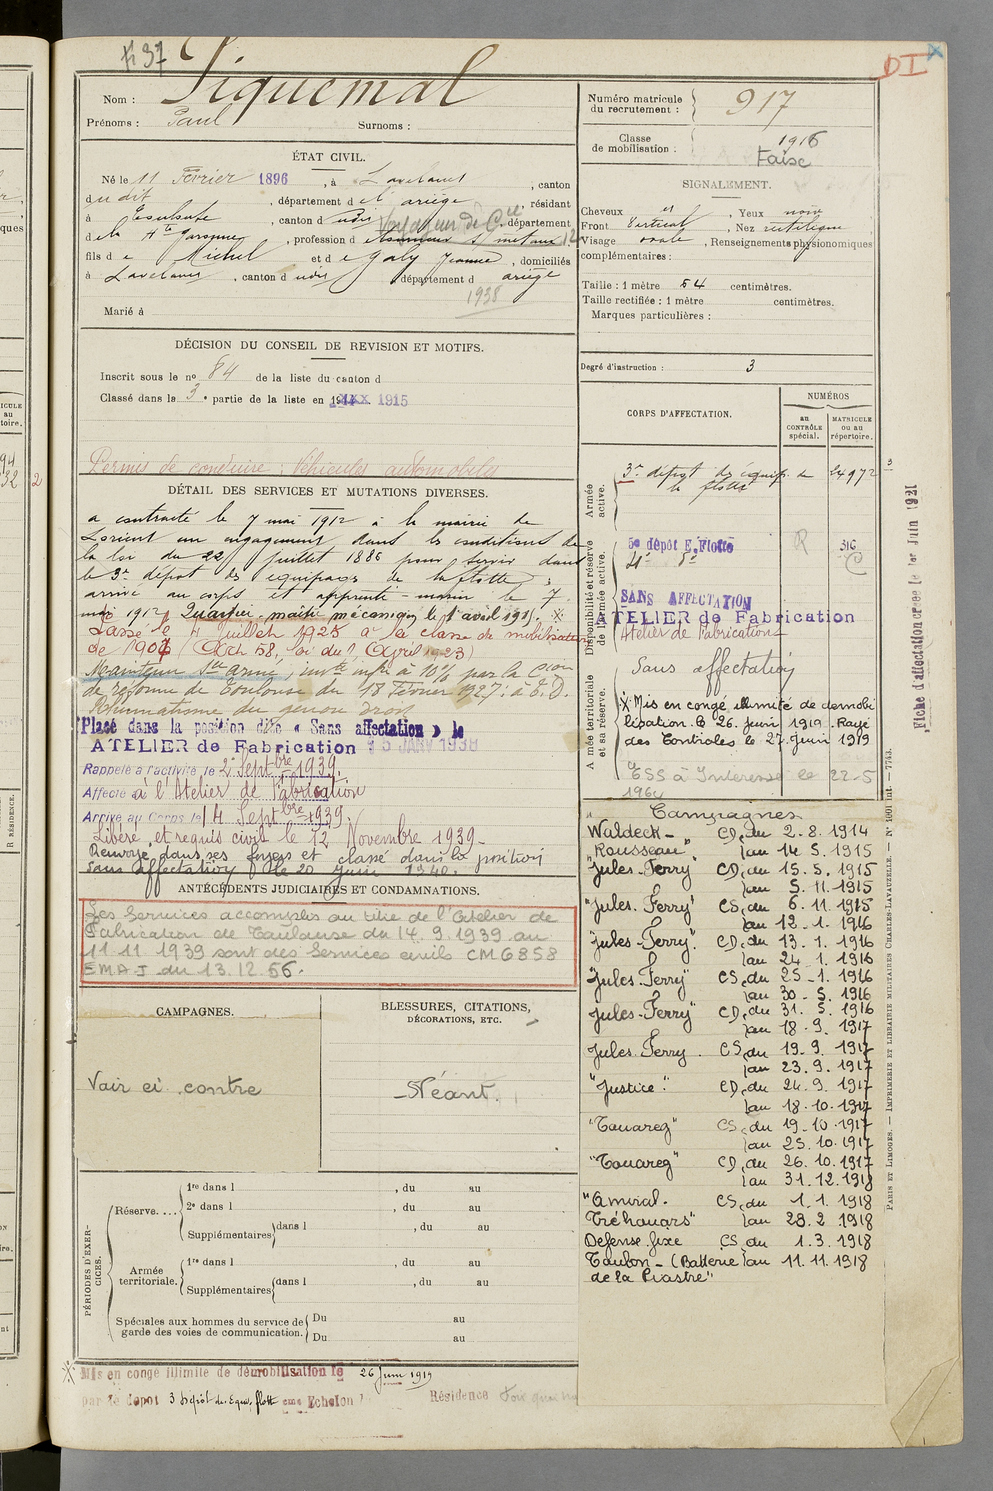 Nom : Piquemal
Prénoms : Paul Surnoms :
ÉTAT CIVIL.
Né le 11 Février 1896, à Lavelanet, canton
du dit, département de l'ariège, résidant
à Toulouse, canton du dit, département
de la Hte Garonne, profession d
fils de Michel et de Galy Jeanne, domiciliés
à Lavelanet, canton du dit, département d ariège
1938
Marié à
DÉCISION DU CONSEIL DE REVISION ET MOTIFS.
Inscrit sous le no 84 de la liste du canton d
Classé dans la 3e partie de la liste en 1915
Permis de conduire : Véhicules automobiles
DÉTAIL DES SERVICES ET MUTATIONS DIVERSES.
a contracté le 7 mai 1912 à la mairie de
Lorient un engagement dans les conditions de
la loi du 22 juillet 1886 pour servir dans
le 3e dépôt des équipages de la flotte ;
arrivé au corps et apprenti-marin le 7
mai 1912, Quartier-maître mécanicien le 1er avril 1915.
Passé le 4 Juillet 1925 à la classe de mobilisation
de 1907 (Art 58, loi du 1 Avril 1923)
Maintenu Sce armé, invte infre à 10% par la Cion
de réforme de Toulouse du 18 Février 1927 : à E.D.
Rhumatisme du genou droit
Placé dans la position dite « Sans affectation » le
ATELIER de Fabrication 15 JANV 1938
Rappelé à l'activité le 2 Septbre 1939.
Affecté à l'Atelier de Fabrication
Arrivé au Corps le 14 Septbre 1939
Libéré et requis civil le 12 Novembre 1939-
Renvoyé dans ses foyers et classé dans la position
sans affectation le 20 Juin 1940.
ANTÉCÉDENTS JUDICIAIRES ET CONDAMNATIONS.
Les Services accomplis au titre de l'Atelier de
Fabrication de Toulouse du 14.9.1939 au
11.11.1939 sont des Services civils CM 6858
EMA-I du 13.12.56.
CAMPAGNES.
Voir ci contre
BLESSURES, CITATIONS,
DÉCORATIONS, ETC.
Néant.
PÉRIODES D'EXERCICES.
Réserve....
1re dans l , du au
2e dans l , du au
Supplémentaires dans l , du au
Armée territoriale.
1re dans l , du au
Supplémentaires dans l , du au
Spéciales aux hommes du service de garde des voies de communication.
Du au
Du au
Mis en congé illimité de démobilisation le 26 Juin 1919
par le dépôt 3 Dépôt des Equi, flotte eme Echelon Résidence
DI
Numéro matricule du recrutement : 917
Classe de mobilisation : 1916
SIGNALEMENT.
Cheveux , Yeux noirs
Front Vertical, Nez rectiligne
Visage ovale, Renseignements physionomiques
complémentaires :
Taille : 1 mètre 64 centimètres.
Taille rectifiée : 1 mètre centimètres.
Marques particulières :
Degré d'instruction : 3
CORPS D'AFFECTATION.
NUMÉROS
au CONTRÔLE spécial.
MATRICULE ou au répertoire.
Armée active.
3e dépôt des équip. de la flotte 24972
Disponibilité et réserve de l'armée active.
5e dépôt E. Flotte 316
SANS AFFECTATION
ATELIER de Fabrication
Atelier de Fabrication
Armée territoriale et sa réserve.
Sans affectation
Mis en congé illimité de démobi
lisation le 26 juin 1919. Rayé
des Contrôles le 27 juin 1919
ESS à Intéressé le 22-5
1964
Campagnes
"Waldeck- CD, du 2.8.1914
Rousseau" au 14.5.1915
"Jules-Ferry" CD, du 15.5.1915
au 5.11.1915
"Jules. Ferry" CS, du 6.11.1915
au 12.1.1916
"Jules-Ferry". CD, du 13.1.1916
au 24.1.1916
"Jules-Ferry" CS, du 25-1.1916
au 30-5.1916
"Jules-Ferry" CD, du 31.5.1916
au 18.9.1917
Jules. Ferry. CS, du 19.9.1917
au 23.9.1917
"Justice" CD, du 24.9.1917
au 18.10.1917
"Touareg" CS, du 19.10.1917
au 25.10.1917
"Touareg" CD, du 26.10.1917
au 31.12.1918
"Amiral. CS, du 1.1.1918
Tréhouart" au 28.2.1918
Défense fixe CS, du 1.3.1918
Toulon - (Batterie au 11.11.1918
de la Piastre"
Fiche d'affectation créée le 1er Juin 1921
PARIS ET LIMOGES. — IMPRIMERIE ET LIBRAIRIE MILITAIRES CHARLES-LAVAUZELLE.